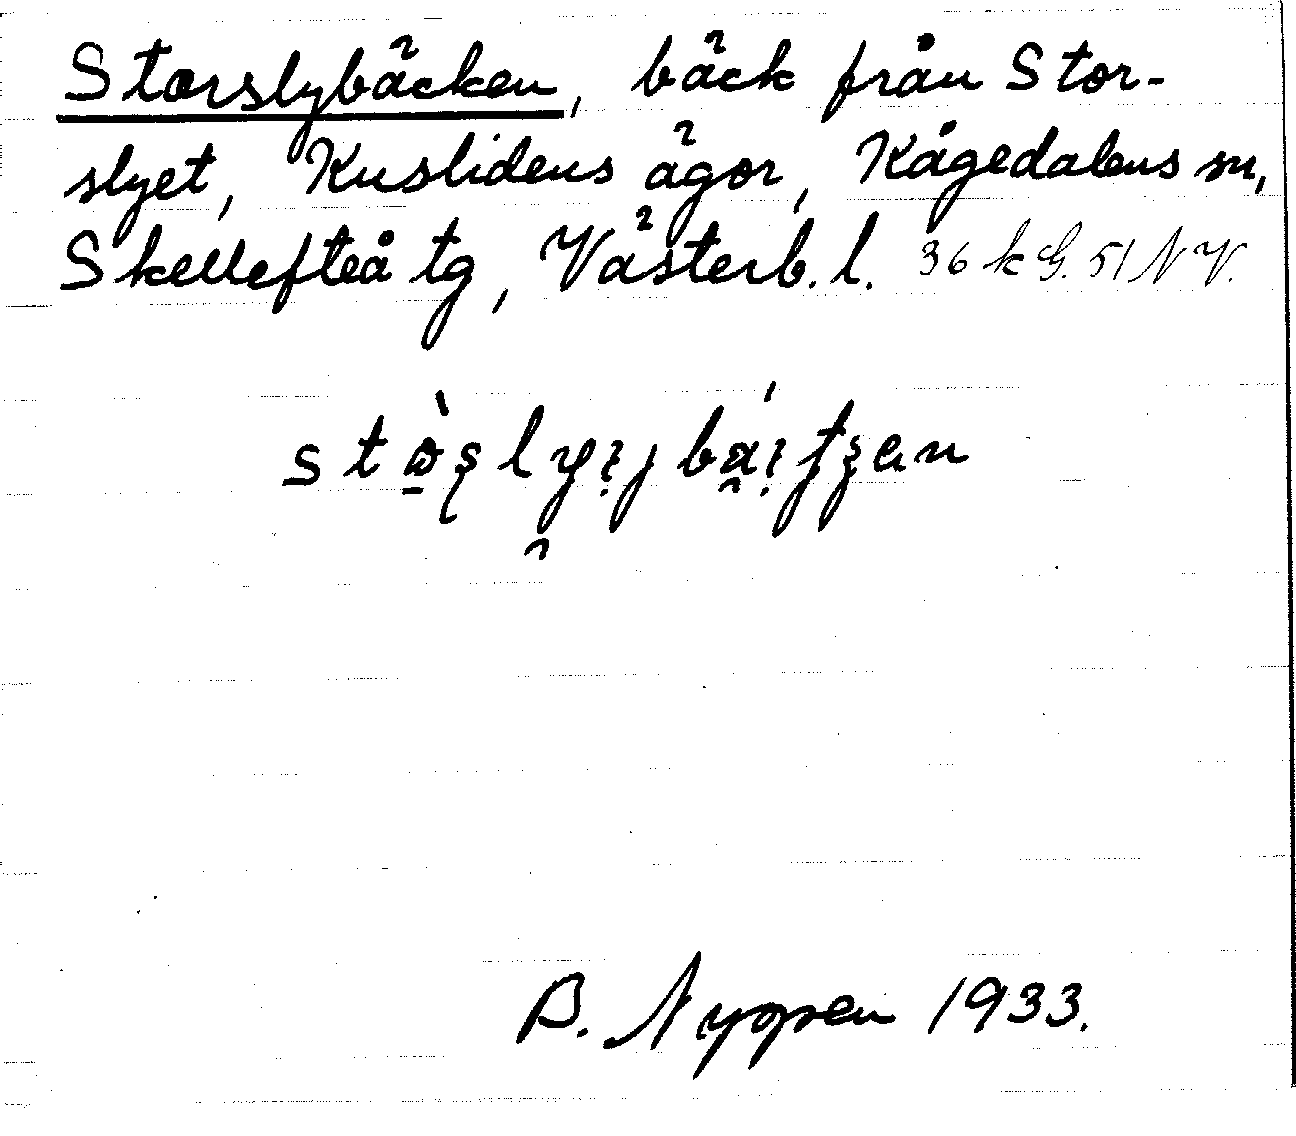 Storslybäcken, bäck från Stor-
slyet, Kuslidens ägor, Kågedalens sn,
Skellefteå tg, Västerb. l. 36 k G. 51 N V.
B. Nygren 1933.